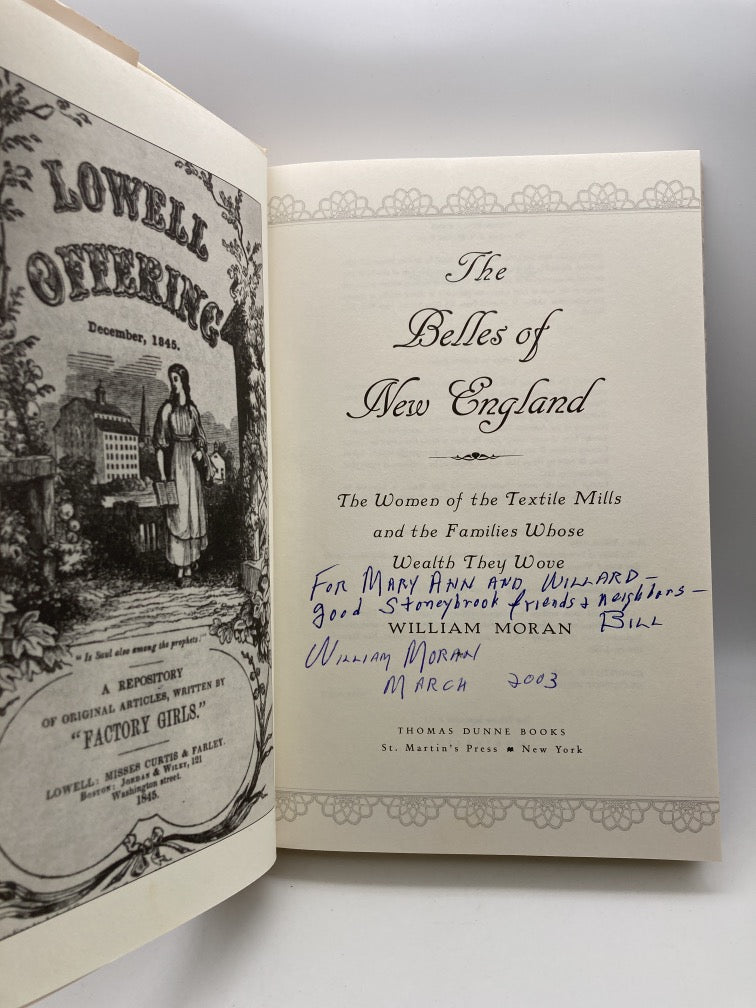 LOWELL
OFFERING
December, 1845.
"Is Saul also among the prophets?"
A REPOSITORY
OF ORIGINAL ARTICLES, WRITTEN BY
"FACTORY GIRLS."
LOWELL: MISSES CURTIS & FARLEY.
BOSTON: JORDAN & WILEY, 121
Washington street.
1845.
The
Belles of
New England
The Women of the Textile Mills
and the Families Whose
Wealth They Wove
FOR MARY ANN AND WILLARD—
good Stoneybrook friends & neighbors—
BILL
WILLIAM MORAN
WILLIAM MORAN
MARCH 2003
THOMAS DUNNE BOOKS
St. Martin's Press New York